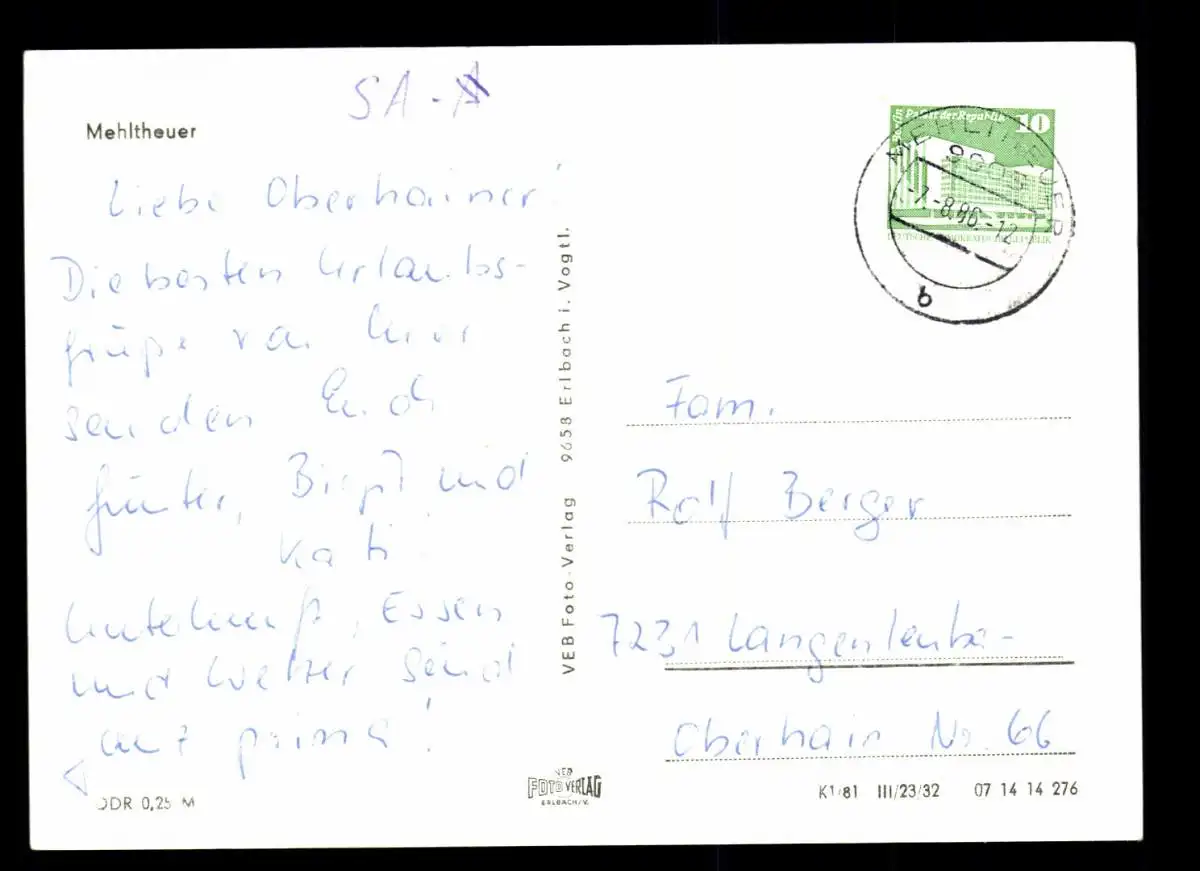 SA-
Mehltheuer
Liebe Oberhainer!
Die besten Urlaubs-
grüße von hier
senden Euch
Günter, Birgit und
Kati!
Unterkunft, Essen
und Wetter sind
ganz prima!
DDR 0,25 M
VEB Foto-Verlag 9658 Erlbach i. Vogtl.
VEB
FOTO VERLAG
ERLBACH/V.
Berlin Palast der Republik 10
DEUTSCHE DEMOKRATISCHE REPUBLIK
MEHLTHEUER
-7.-8.86.-12
b
Fam.
Rolf Berger
7231 Langenleuba-
Oberhain Nr. 66
K1/81 III/23/32 07 14 14 276